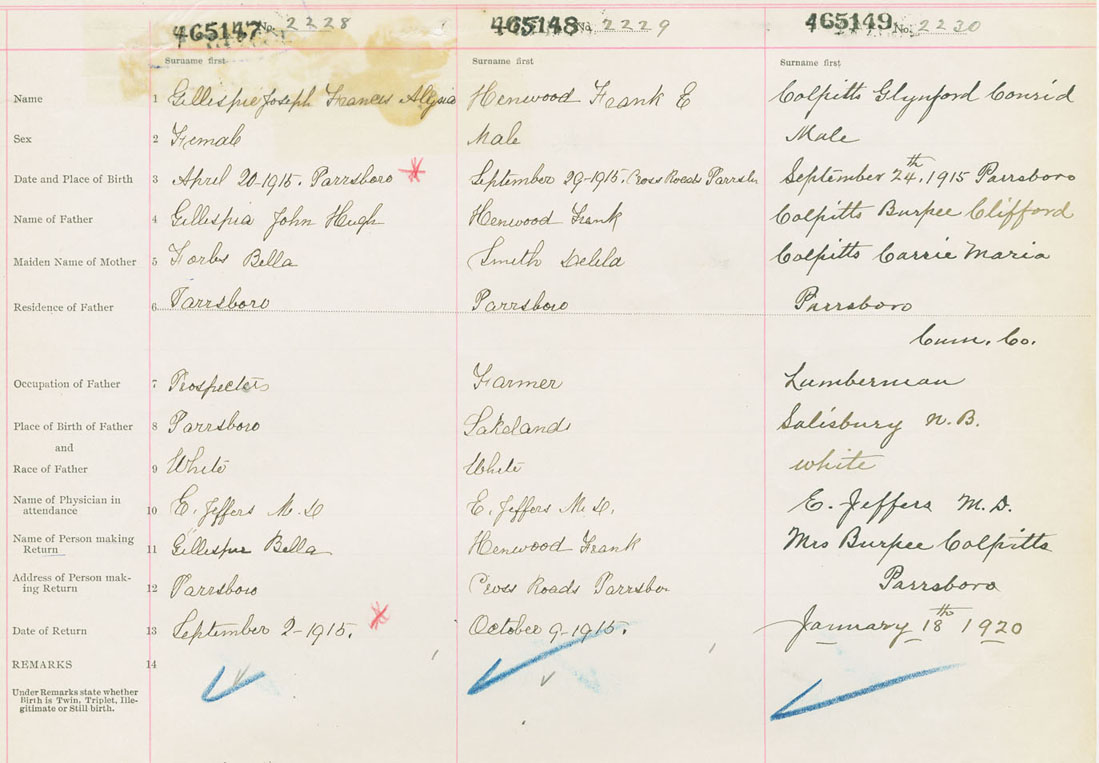 465147 No. 2228 465148 No. 2229 465149 No. 2230
Surname first Surname first Surname first
Name 1 Gillespie Joseph Francis Henwood Frank E Colpitts Glynford Conrid
Sex 2 Female Male Male
Date and Place of Birth 3 April 20-1915. Parrsboro September 29-1915. Cross Roads September 24th, 1915 Parrsboro
Name of Father 4 Gillespia John Hugh Henwood Frank Colpitts Burpee Clifford
Maiden Name of Mother 5 Bella Smith Delila Colpitts Carrie Maria
Residence of Father 6 Parrsboro Parrsboro Parrsboro
Cum. Co.
Occupation of Father 7 Prospector Farmer Lumberman
Place of Birth of Father 8 Parrsboro Lakelands Salisbury N.B.
and
Race of Father 9 White White white
Name of Physician in
attendance 10 E. Jeffers M.D E. Jeffers M.D. E. Jeffers M.D.
Name of Person making
Return 11 Gillespie Bella Henwood Frank Mrs Burpee Colpitts
Address of Person mak-
ing Return 12 Parrsboro Cross Roads Parrsboro
Date of Return 13 September 2-1915. October 9-1915. January 18th 1920
REMARKS 14
Under Remarks state whether
Birth is Twin, Triplet, Ille-
gitimate or Still birth.